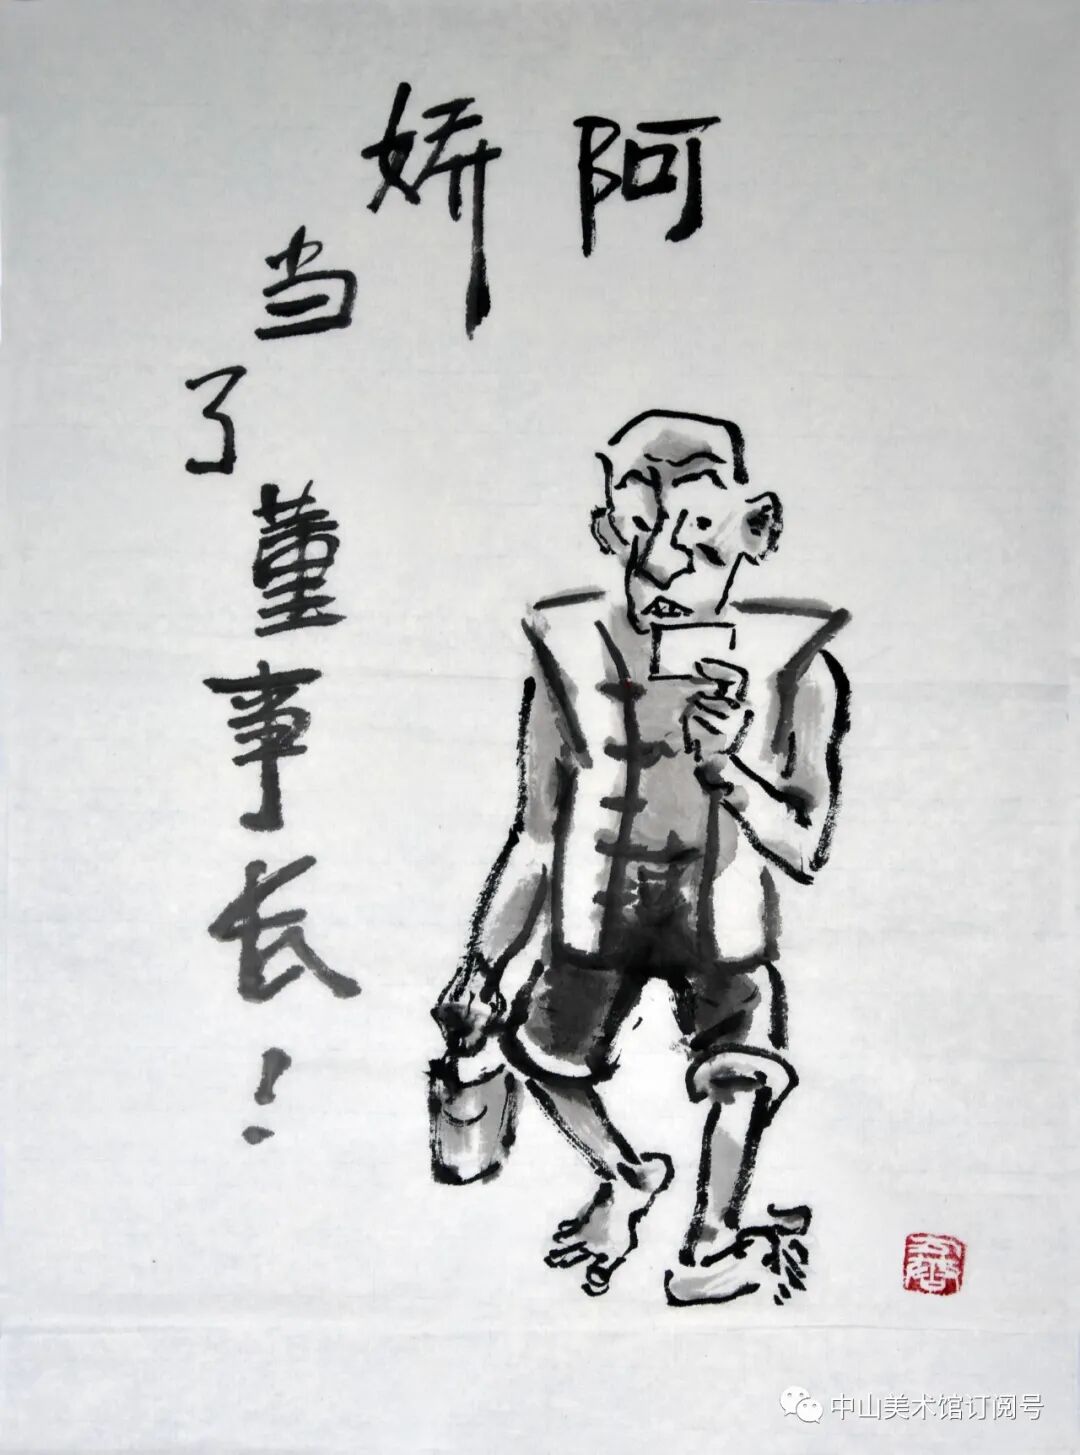 阿娇当了董事长!
中山美术馆订阅号